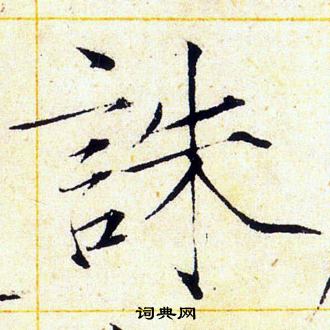 誅
词典网